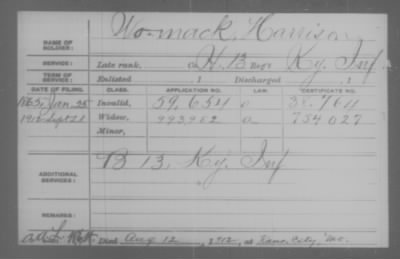 NAME OF SOLDIER: Wormack, Harrison
SERVICE: Late rank, Co. H, 13 Reg't Ky. Inf
TERM OF SERVICE: Enlisted , 1 Discharged , 1
DATE OF FILING. CLASS. APPLICATION NO. LAW. CERTIFICATE NO.
1865, Jan. 25 Invalid, 59,654 38,764
1912 Sept 21 Widow, 993,962 a 754 027
Minor,
ADDITIONAL SERVICES: B 13, Ky. Inf
REMARKS:
Died Aug 12, 1912, at Kans. City Mo.